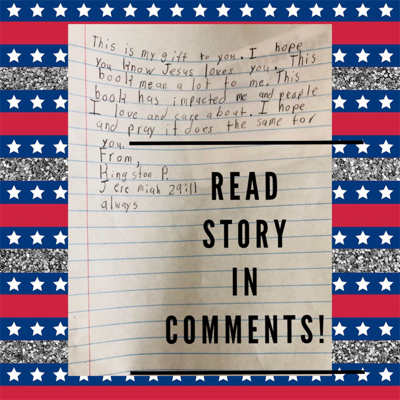 This is my gift to you. I hope
you know Jesus loves you. This
book mean a lot to me. This
book has impacted me and people
I love and care about. I hope
and pray it does the same for
you.
From,
Kingston P.
Jeremiah 29:11
always
READ
STORY
IN
COMMENTS!